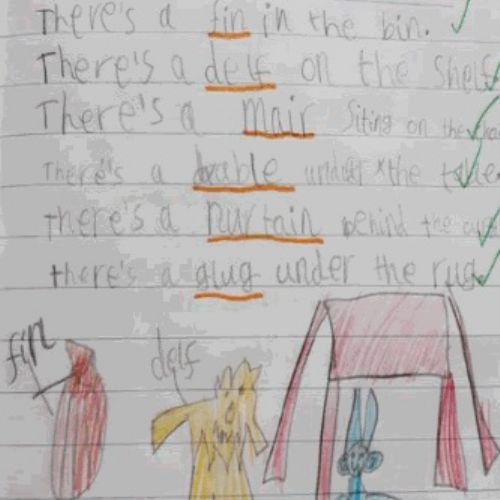 There's a fin in the bin.
There's a delf on the shelf
There's a mair siting on the chair
There's a bxable under the table
There's a nurtain behind the
there's a glug under the rug
fin delf